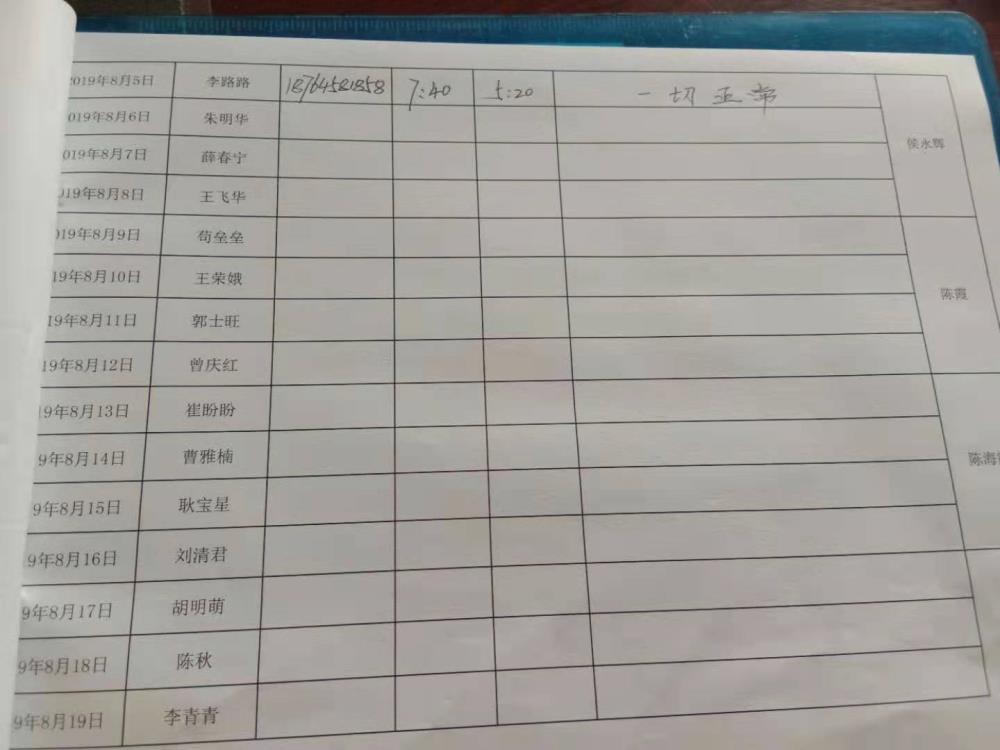 2019年8月5日 李路路 18764581858 7:40 5:20 一切正常
019年8月6日 朱明华 侯永辉
019年8月7日 薛春宁
019年8月8日 王飞华
019年8月9日 苟垒垒
19年8月10日 王荣娥 陈霞
19年8月11日 郭士旺
19年8月12日 曾庆红
19年8月13日 崔盼盼
9年8月14日 曹雅楠 陈海
9年8月15日 耿宝星
9年8月16日 刘清君
9年8月17日 胡明萌
9年8月18日 陈秋
9年8月19日 李青青